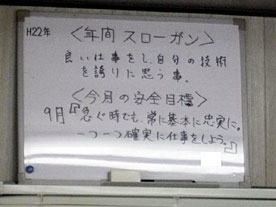 H22年
〈年間スローガン〉
良い仕事をし、自分の技術
を誇りに思う事。
〈今月の安全目標〉
9月『急ぐ時でも、常に基本に忠実に。
一つ一つ確実に仕事をしよう。』